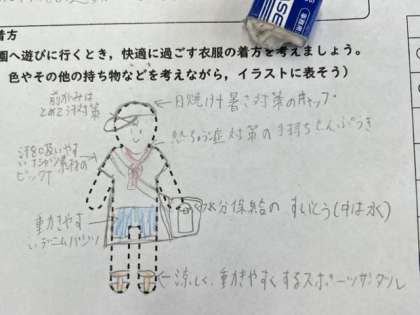 着方
園へ遊びに行くとき，快適に過ごす衣服の着方を考えましょう。
色やその他の持ち物などを考えながら，イラストに表そう）
前がみは
とめて対策
日焼け+暑さ対策のキャップ
熱ちゅう症対策の手持ちせんぷうき
汗を吸いやす
いTシャツ素材の
ビッグT
水分保給の すいとう(中は水)
動きやす
いデニムパンツ
涼しく、動きやすくするスポーツサンダル